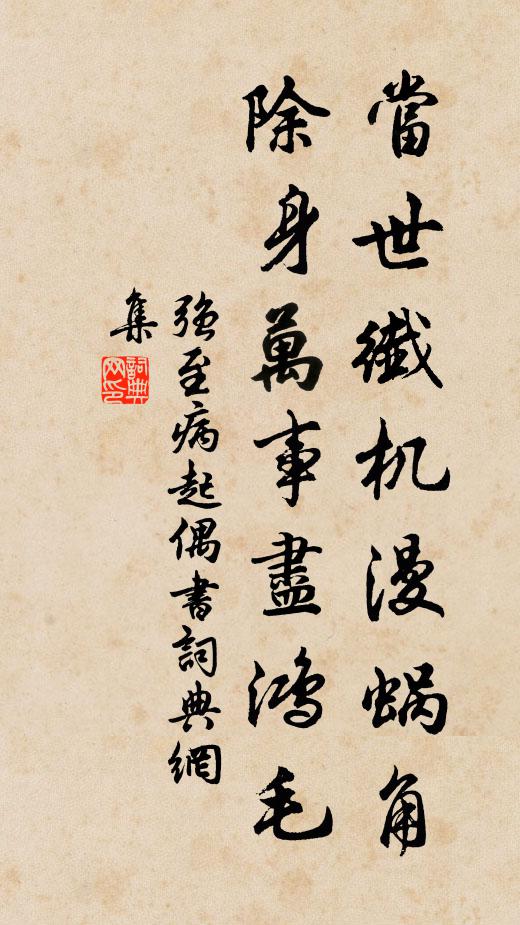 當世纖机漫蝸角
除身萬事盡鴻毛
強至病起偶書詞典網
集
詞典網印